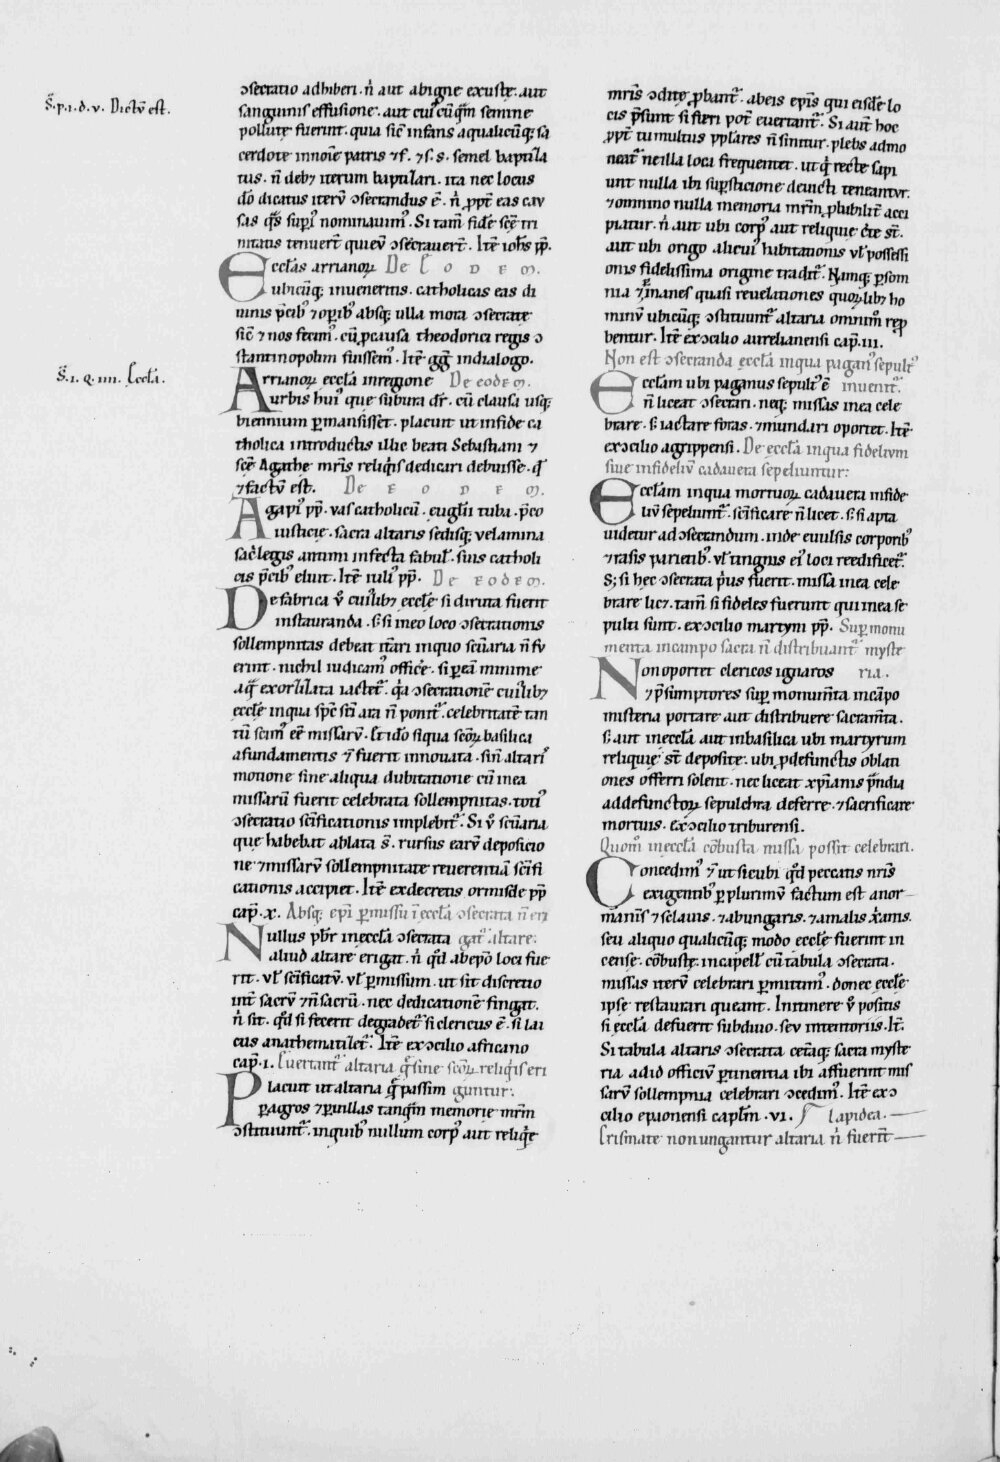 S̄. p. i. d. v. Dictū est.
ɔsecratio adhiberi. n̄ aut abigne exustę. aut
sanguinis effusione. aut cuiꝰcūq̄m semine
pollutę fuerint. quia sic̄ infans aqualicūq; sa
cerdote innoīe patris ⁊ f. ⁊ s. s. semel baptiza
tus. n̄ deb; iterum baptizari. ita nec locus
dō dicatus iterū ɔsecrandus ē. n̄ p̱pt̄ eas cau
sas q̄s suꝑiꝰ nominauimꝰ. Si tam̄ fidē scē tri
nitatis tenuer̄t qui eū ɔsecrauer̄t. Itē ioh̄s pp̄.
Ecclīas arrianoꝝ De Eodem.
ubicūq; inueneritis. catholicas eas di
uinis p̄cibꝰ ⁊ oꝑibꝰ absq; ulla mora ɔsecrate
sic̄ ⁊ nos fecimꝰ. cū ꝓ causa theodorici regis ɔ
stantinopolim fuissemꝰ. Itē gḡ indialogo.
S̄. i. q. iiii. Eccl̄a.
Arrianoꝝ eccl̄a inregione De eodem.
urbis huiꝰ que subura dr̄. cū clausa usq;
biennium ꝑmansisset. placuit ut infide ca
tholica introductis illic beati Sebastiani ⁊
scē Agathę mr̄is reliq̄is dedicari debuisse. qd̄
⁊ factū est. De eodem.
Agapiꝰ pp̄. uas catholicū. euglīi tuba. p̄co
iusticię. sacra altaris sedisq; uelamina
sac̄legis antim̄i infecta fabulꝰ. suis catholi
cis p̄cibꝰ eluit. Itē iuliꝰ pp̄. De eodem.
De fabrica ū cuiꝰlib; ecclę̄ si diruta fuerit
instauranda. s; si in eo loco ɔsecrationis
sollempnitas debeat itāri inquo scūaria n̄ fu
erint. nichil iudicamꝰ officē. si ꝑ eā minime
aq̄ exorzizata iactet̄. q̄a ɔsecrationē cuiꝰlib;
ecclę̄ inqua spc̄ scī ara n̄ ponit̄. celebritatē tan
tū scimꝰ eē missarū. Et idō siqua scōꝝ basilica
afundamentis ⁊ fuerit innouata. sin̄ altariꝰ
motione sine aliqua dubitatione cū inea
missarū fuerit celebrata sollempnitas. totiꝰ
ɔsecratio scīficationis implebit̄. Si ū scūaria
que habebat ablata s̄. rursus earū deposicio
ne ⁊ missarū sollempnitate reuerentiā scīfi
cationis accipiet. Itē exdecretis ormisdę pp̄
cap̄. x. Absq; ep̄i ꝑmissu ī eccl̄a ɔsecrata n̄ eri
Nullus p̄br ineccl̄a ɔsecrata gat̄ altare.
aliud altare erigat. n̄ qd̄ abep̄o loci fue
rit. ul̄ scīficatū. ul̄ ꝑmissum. ut sit discretio
int̄ sacrū ⁊ n̄ sacrū. nec dedicationē fingat.
n̄ sit. qd̄ si fecerit degradet̄ si clericus ē. si lai
cus anathematizet̄. Itē exɔcilio africano
cap̄. i. Euertant̄ altaria q̄ sine scōꝝ reliq̄is eri
Placuit ut altaria q̄ passim guntur.
ꝑ agros ⁊ ꝑ uillas tanq̄m memorie mr̄m
ɔstituunt̄. inquibꝰ nullum corpꝰ aut reliq̄ę
mr̄is ɔditę ꝓbant̄. abeis ep̄is qui eisdē lo
cis p̄sunt si fieri pot̄ euertant̄. Si aut̄ hoc
p̱pt̄ tumultus pp̄lares n̄ sinitur. plebs admo
neat̄ ne illa loca frequentet. ut q̄ recte sapi
unt nulla ibi suꝑsticione deuincti teneantur.
⁊ omnino nulla memoria mr̄m ꝓbabilit̄ acci
piatur. n̄ aut ubi corpꝰ aut reliquie cīe st̄.
aut ubi origo alicuiꝰ habitationis ul̄ possessi
onis fidelissima origine tradit̄. Namq; ꝑ som
nia ⁊ ꝑ inanes quasi reuelationes quoꝝlib; ho
minū ubicūq; ɔstituunt̄ altaria omnimꝰ reꝓ
bentur. Itē exɔcilio aurelianensi cap̄. iii.
Non est ɔsecranda eccl̄a inqua paganꝰ sepultꝰ
Eccl̄am ubi paganus sepultꝰ ē inuenit̄.
n̄ liceat ɔsecrari. neq; missas inea cele
brare. s; iactare foras. ⁊ mundari oportet. Itē
exɔcilio agrippensi. De eccl̄a inqua fidelium
siue infideliū cadauera sepeliuntur:
Eccl̄am inqua mortuoꝝ cadauera infide
liū sepeliunt̄. scīficare n̄ licet. s; si apta
uidetur ad ɔsecrandum. inde euulsis corporibꝰ
⁊ rasis parietibꝰ. ul̄ tingnis eiꝰ loci reedificet̄.
S; si hec ɔsecrata p̄us fuerit. missā inea cele
brare lic;. tam̄ si fideles fuerunt qui inea se
pulti sunt. exɔcilio martyni pp̄. Suꝑ monu
menta incampo sacra n̄ distribuant̄ myste
Non oportet clericos ignaros ria.
⁊ p̄sumptores suꝑ monum̄ta incāpo
misteria portare aut distribuere sacram̄ta.
s; aut ineccl̄a aut inbasilica ubi martyrum
reliquię st̄ depositę. ubi ꝓ defunctis oblati
ones offerri solent. nec liceat xp̄ianis p̄ndia
addefunctoꝝ sepulchra deferre. ⁊ sacrificare
mortuis. exɔcilio triburensi.
Quomꝰ ineccl̄a cōbusta missa possit celebrari.
Concedimꝰ ⁊ ut sicubi qd̄ peccatis nr̄is
exigentibꝰ ꝑ plurimū factum est a nor
mānis ⁊ sclauis. ⁊ abungaris. ⁊ amalis x̄anis.
seu aliquo qualicūq; modo ecclę̄ fuerint in
cense. cōbustę. incapell̄ cū tabula ɔsecrata.
missas iterū celebrari ꝑmittimꝰ. donec ecclę̄
ipsę restaurari queant. Initinere ū positis
si eccl̄a defuerit subdiuo. seu intentoriis. It̄.
Si tabula altaris ɔsecrata cet̄aq; sacra myste
ria adid officiū ꝑtinentia ibi affuerint mis
sarū sollempnia celebrari ɔcedimꝰ. Itē exɔ
cilio epaonensi capl̄m. vi. lapidea.
Crismate non ungantur altaria n̄ fuerīt